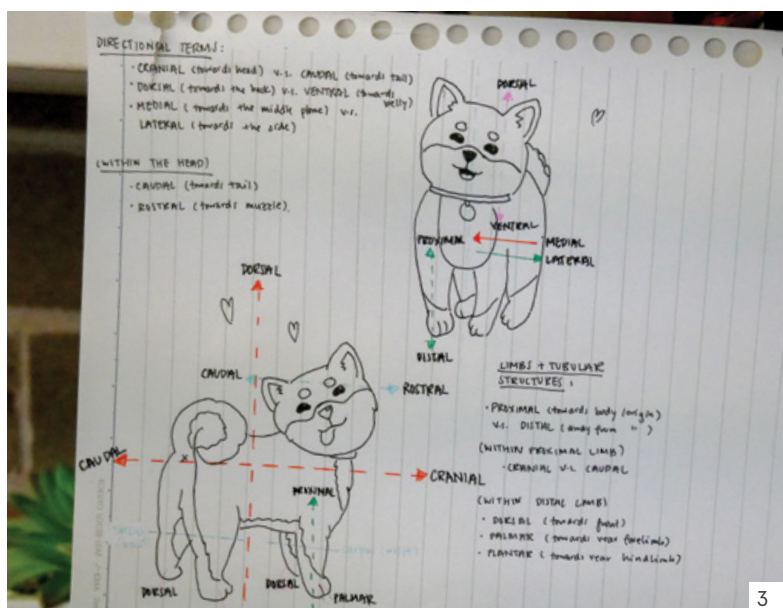 DIRECTIONAL TERMS:
· CRANIAL (towards head) v.s. CAUDAL (towards tail)
· DORSAL (towards the back) v.s. VENTRAL (towards belly)
· MEDIAL (towards the middle plane) v.s.
LATERAL (towards the side)
(WITHIN THE HEAD)
· CAUDAL (towards tail)
· ROSTRAL (towards muzzle).
DORSAL
VENTRAL
PROXIMAL
MEDIAL
LATERAL
DISTAL
DORSAL
CAUDAL
ROSTRAL
CAUDAL
CRANIAL
PROXIMAL
DORSAL
DORSAL
PALMAR
LIMBS + TUBULAR
STRUCTURES:
· PROXIMAL (towards body/origin)
v.s. DISTAL (away from " )
(WITHIN PROXIMAL LIMB)
· CRANIAL v.s. CAUDAL
(WITHIN DISTAL LIMB)
· DORSAL (towards front)
· PALMAR (towards rear forelimb)
· PLANTAR (towards rear hindlimb)
3